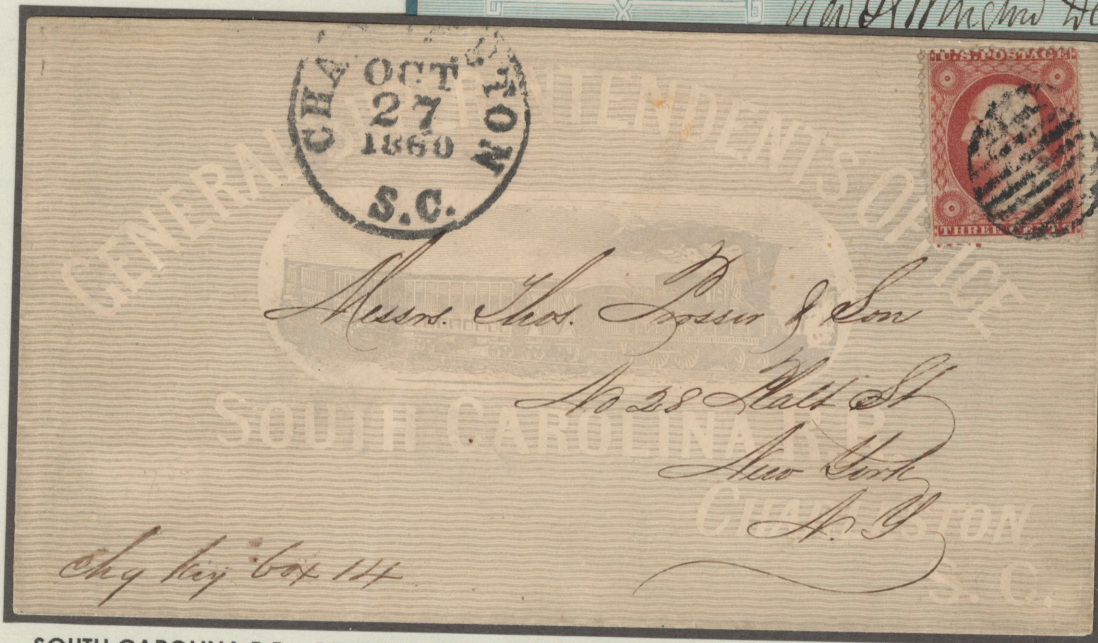 CHARLESTON
OCT
27
1860
S.C.
U.S. POSTAGE
THREE CENTS
GENERAL SUPERINTENDENTS OFFICE
SOUTH CAROLINA R.R.
CHARLESTON,
S. C.
Messrs. Thos. Prosser & Son
No 28 Platt St
New York
N. Y
Chg Key box 14
SOUTH CAROLINA R.R.